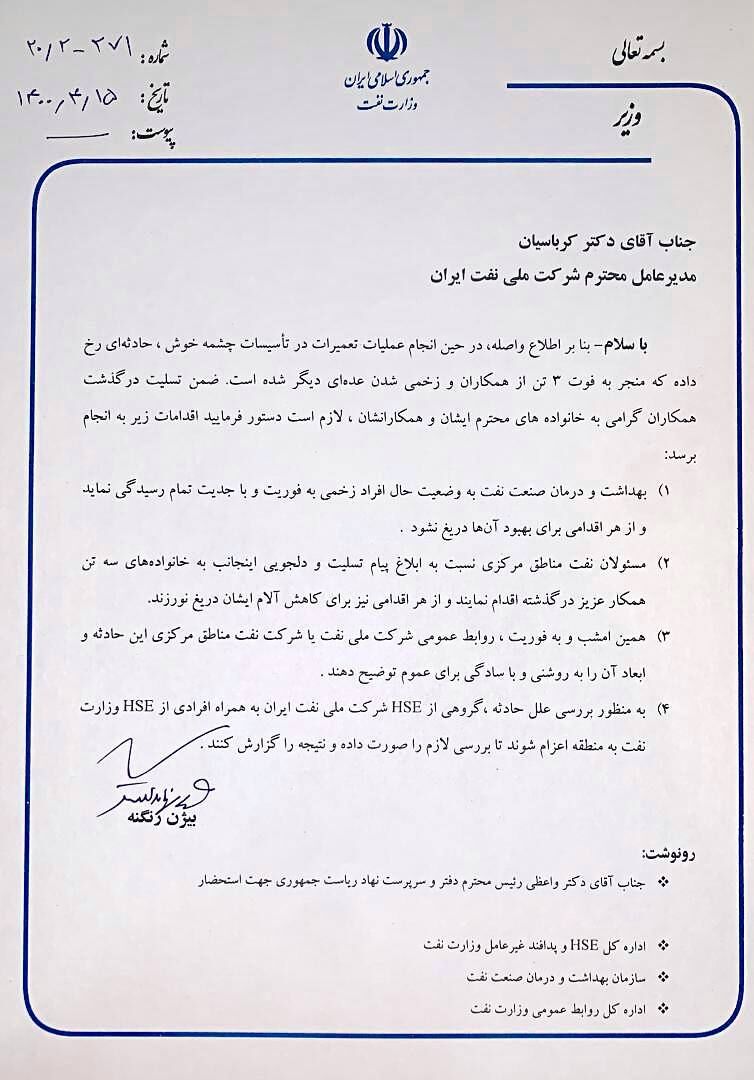 بسمه تعالی
جمهوری اسلامی ایران
وزارت نفت
وزیر
شماره: ۲۰/۲-۲۷۱
تاریخ: ۱۴۰۰/۴/۱۵
پیوست:
جناب آقای دکتر کرباسیان
مدیرعامل محترم شرکت ملی نفت ایران
با سلام- بنا بر اطلاع واصله، در حین انجام عملیات تعمیرات در تأسیسات چشمه خوش ، حادثه‌ای رخ
داده که منجر به فوت ۳ تن از همکاران و زخمی شدن عده‌ای دیگر شده است. ضمن تسلیت درگذشت
همکاران گرامی به خانواده های محترم ایشان و همکارانشان ، لازم است دستور فرمایید اقدامات زیر به انجام
برسد:
۱) بهداشت و درمان صنعت نفت به وضعیت حال افراد زخمی به فوریت و با جدیت تمام رسیدگی نماید
و از هر اقدامی برای بهبود آن‌ها دریغ نشود .
۲) مسئولان نفت مناطق مرکزی نسبت به ابلاغ پیام تسلیت و دلجویی اینجانب به خانواده‌های سه تن
همکار عزیز درگذشته اقدام نمایند و از هر اقدامی نیز برای کاهش آلام ایشان دریغ نورزند.
۳) همین امشب و به فوریت ، روابط عمومی شرکت ملی نفت یا شرکت نفت مناطق مرکزی این حادثه و
ابعاد آن را به روشنی و با سادگی برای عموم توضیح دهند .
۴) به منظور بررسی علل حادثه ،گروهی از HSE شرکت ملی نفت ایران به همراه افرادی از HSE وزارت
نفت به منطقه اعزام شوند تا بررسی لازم را صورت داده و نتیجه را گزارش کنند .
بیژن زنگنه
رونوشت:
❖ جناب آقای دکتر واعظی رئیس محترم دفتر و سرپرست نهاد ریاست جمهوری جهت استحضار
❖ اداره کل HSE و پدافند غیرعامل وزارت نفت
❖ سازمان بهداشت و درمان صنعت نفت
❖ اداره کل روابط عمومی وزارت نفت